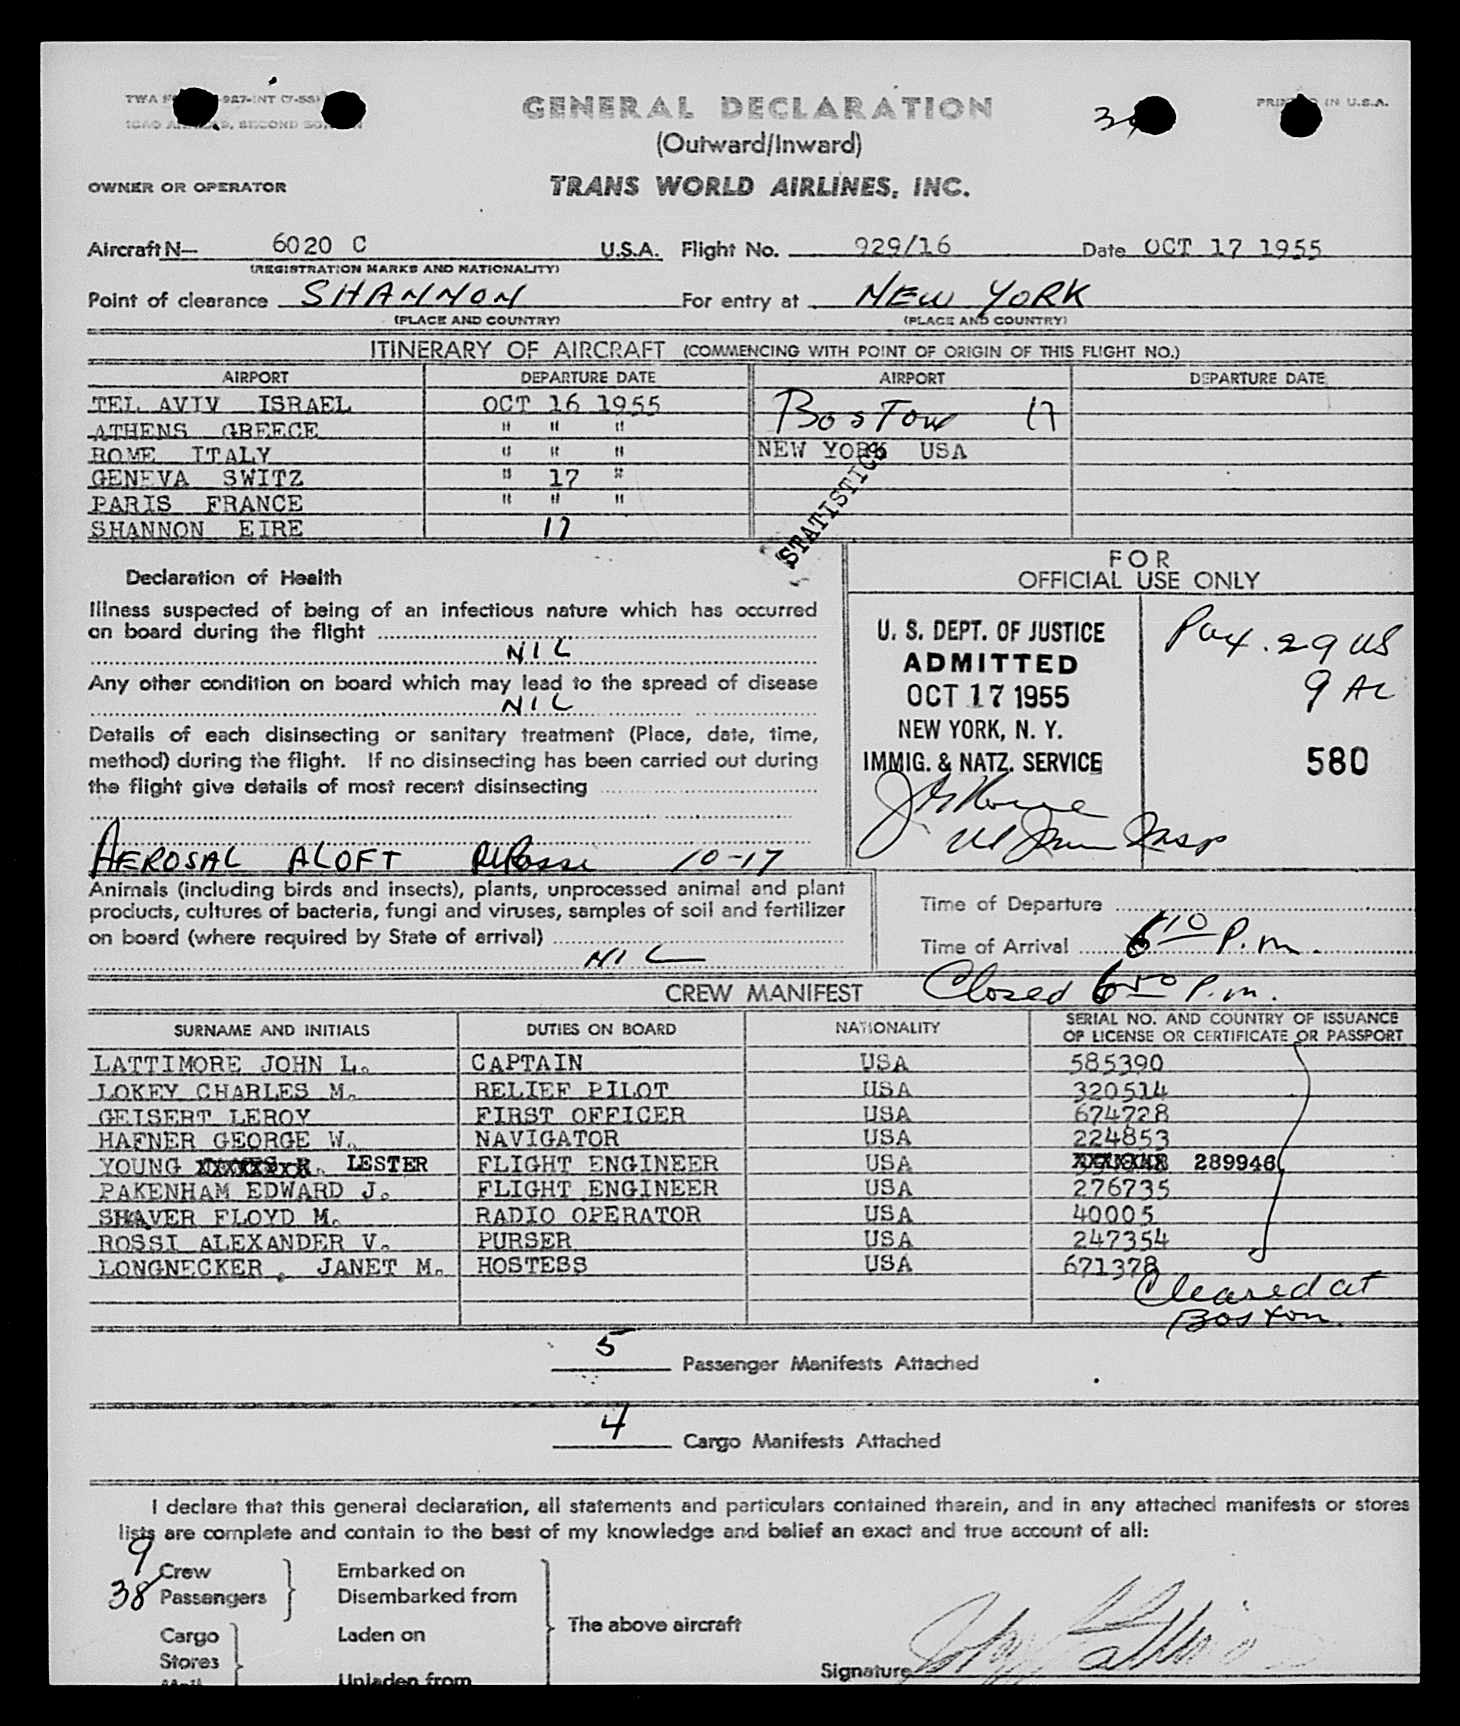 TWA 927-INT (7-55)
PRINTED IN U.S.A.
ICAO ANNEX 9, SECOND EDITION
GENERAL DECLARATION
(Outward/Inward)
OWNER OR OPERATOR TRANS WORLD AIRLINES, INC.
Aircraft N— 6020 C U.S.A. Flight No. 929/16 Date OCT 17 1955
(REGISTRATION MARKS AND NATIONALITY)
Point of clearance SHANNON For entry at NEW YORK
(PLACE AND COUNTRY) (PLACE AND COUNTRY)
ITINERARY OF AIRCRAFT (COMMENCING WITH POINT OF ORIGIN OF THIS FLIGHT NO.)
AIRPORT DEPARTURE DATE AIRPORT DEPARTURE DATE
TEL AVIV ISRAEL OCT 16 1955 BOSTON 17
ATHENS GREECE " " "
ROME ITALY " " " NEW YORK USA
GENEVA SWITZ " 17 "
PARIS FRANCE " " "
SHANNON EIRE 17
STATISTICS
Declaration of Health
Illness suspected of being of an infectious nature which has occurred
on board during the flight
NIL
Any other condition on board which may lead to the spread of disease
NIL
Details of each disinsecting or sanitary treatment (Place, date, time,
method) during the flight. If no disinsecting has been carried out during
the flight give details of most recent disinsecting
AEROSAL ALOFT 10-17
FOR
OFFICIAL USE ONLY
U. S. DEPT. OF JUSTICE
ADMITTED
OCT 17 1955
NEW YORK, N. Y.
IMMIG. & NATZ. SERVICE
Pax. 29 US
9 AL
580
Insp
Animals (including birds and insects), plants, unprocessed animal and plant
products, cultures of bacteria, fungi and viruses, samples of soil and fertilizer
on board (where required by State of arrival)
NIL
Time of Departure
Time of Arrival 6 10 P.m.
Closed 6 50 P.m.
CREW MANIFEST
SURNAME AND INITIALS DUTIES ON BOARD NATIONALITY SERIAL NO. AND COUNTRY OF ISSUANCE
OF LICENSE OR CERTIFICATE OR PASSPORT
LATTIMORE JOHN L. CAPTAIN USA 585390
LOKEY CHARLES M. RELIEF PILOT USA 320514
GEISERT LEROY FIRST OFFICER USA 674728
HAFNER GEORGE W. NAVIGATOR USA 224853
YOUNG LESTER FLIGHT ENGINEER USA 289946
PAKENHAM EDWARD J. FLIGHT ENGINEER USA 276735
SHAVER FLOYD M. RADIO OPERATOR USA 40005
ROSSI ALEXANDER V. PURSER USA 247354
LONGNECKER, JANET M. HOSTESS USA 671378
Cleared at
Boston.
5 Passenger Manifests Attached
4 Cargo Manifests Attached
I declare that this general declaration, all statements and particulars contained therein, and in any attached manifests or stores
lists are complete and contain to the best of my knowledge and belief an exact and true account of all:
9 Crew
38 Passengers
Embarked on
Disembarked from
Cargo
Stores
Mail
Laden on
Unladen from
The above aircraft
Signature